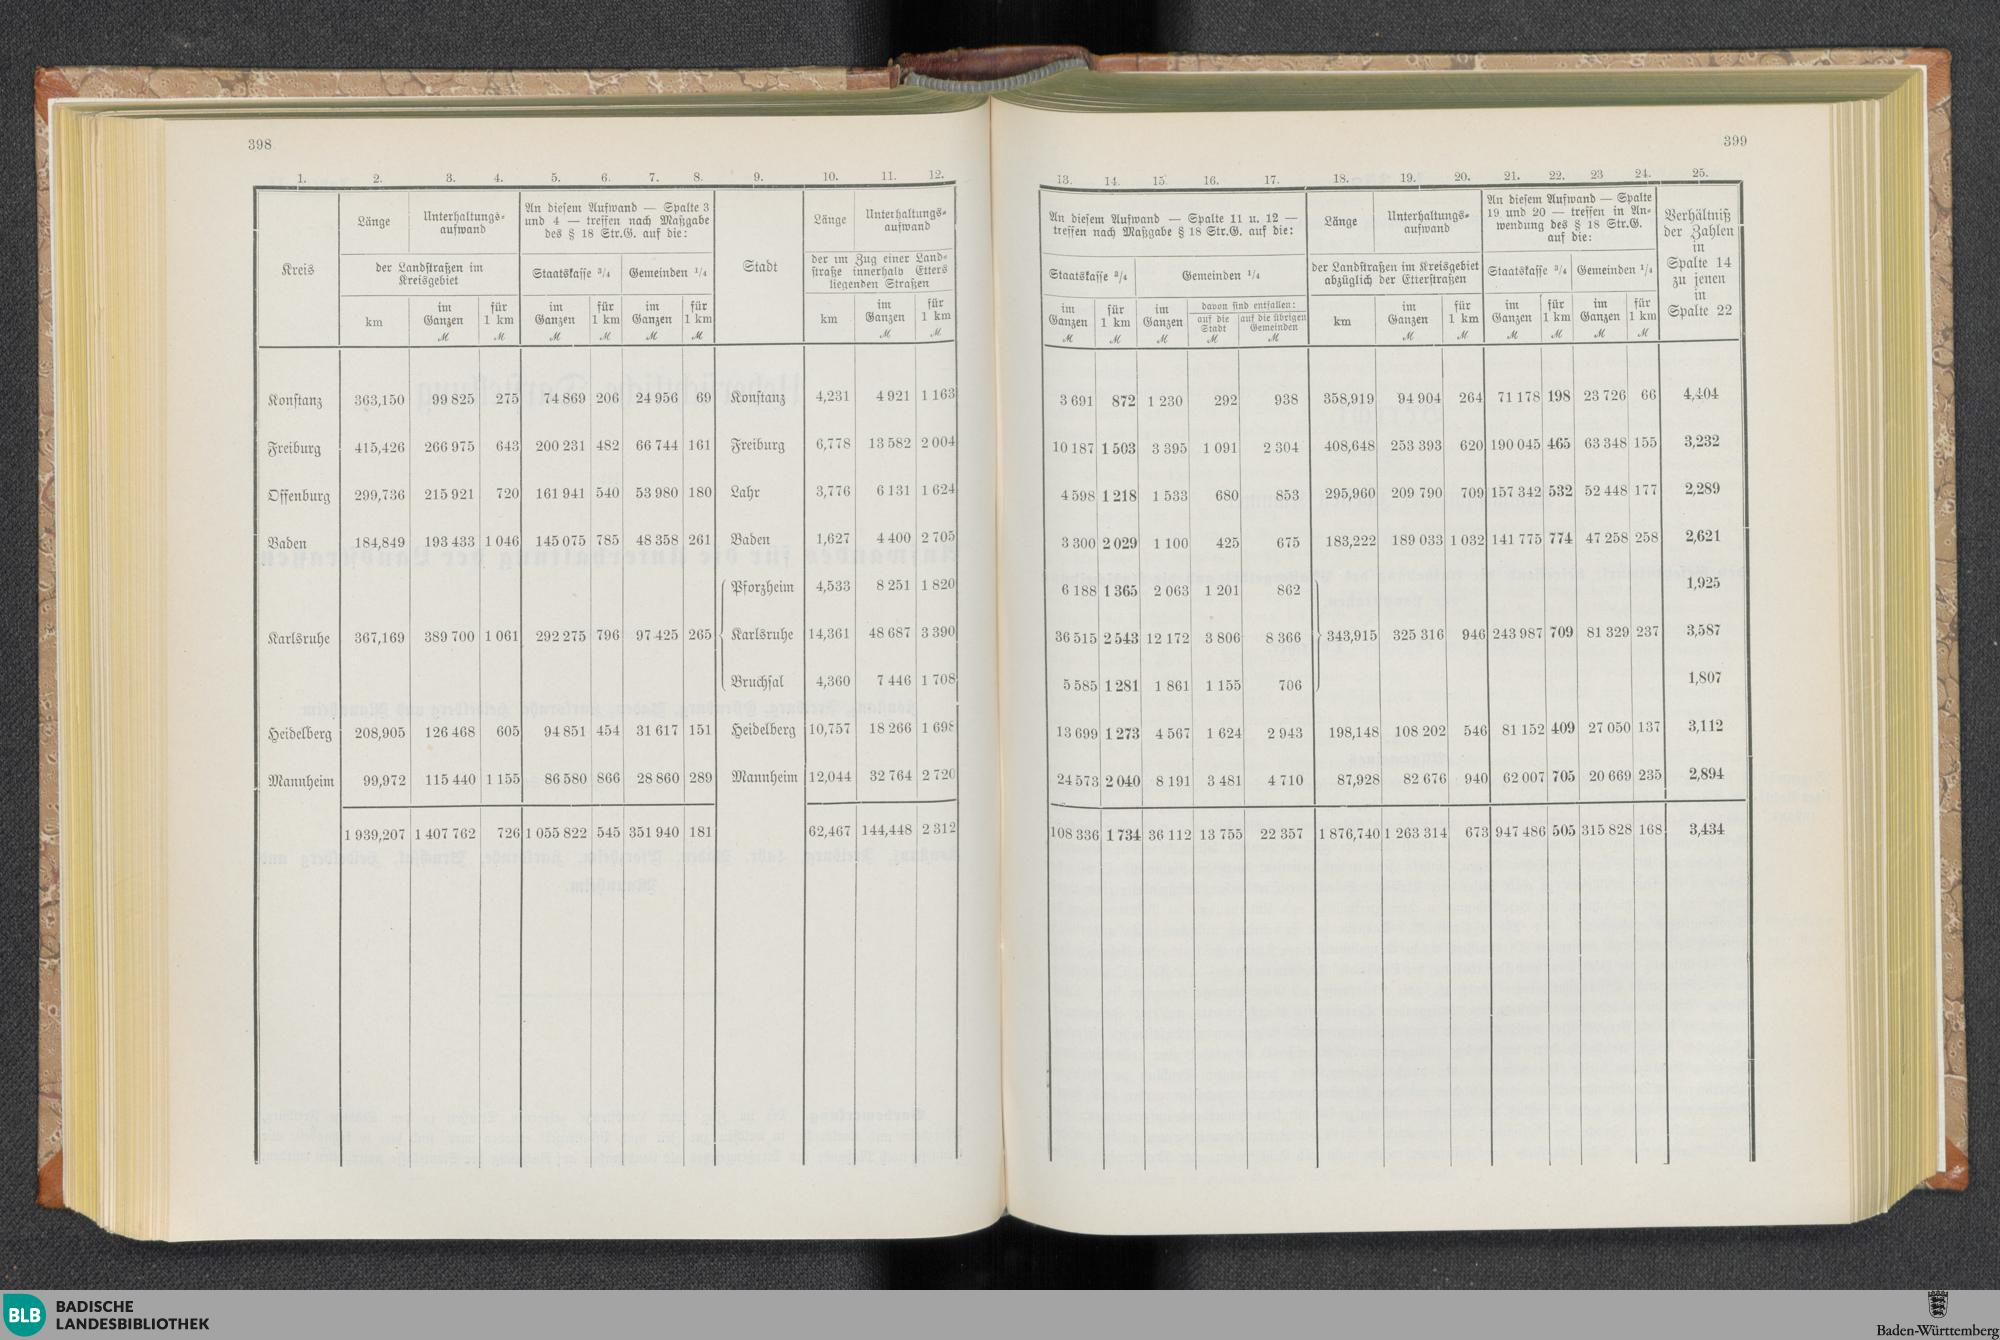 398
1. 2. 3. 4. 5. 6. 7. 8. 9. 10. 11. 12.
Kreis
Länge
Unterhaltungs-
aufwand
An diesem Aufwand — Spalte 3
und 4 — treffen nach Maßgabe
des § 18 Str.G. auf die:
Stadt
Länge
Unterhaltungs-
aufwand
der Landstraßen im
Kreisgebiet
Staatskasse 3/4
Gemeinden 1/4
der im Zug einer Land-
straße innerhalb Etters
liegenden Straßen
km
im
Ganzen
ℳ
für
1 km
ℳ
im
Ganzen
ℳ
für
1 km
ℳ
im
Ganzen
ℳ
für
1 km
ℳ
km
im
Ganzen
ℳ
für
1 km
ℳ
Konstanz 363,150 99 825 275 74 869 206 24 956 69 Konstanz 4,231 4 921 1 163
Freiburg 415,426 266 975 643 200 231 482 66 744 161 Freiburg 6,778 13 582 2 004
Offenburg 299,736 215 921 720 161 941 540 53 980 180 Lahr 3,776 6 131 1 624
Baden 184,849 193 433 1 046 145 075 785 48 358 261 Baden 1,627 4 400 2 705
Pforzheim 4,533 8 251 1 820
Karlsruhe 367,169 389 700 1 061 292 275 796 97 425 265 Karlsruhe 14,361 48 687 3 390
Bruchsal 4,360 7 446 1 708
Heidelberg 208,905 126 468 605 94 851 454 31 617 151 Heidelberg 10,757 18 266 1 698
Mannheim 99,972 115 440 1 155 86 580 866 28 860 289 Mannheim 12,044 32 764 2 720
1 939,207 1 407 762 726 1 055 822 545 351 940 181 62,467 144,448 2 312
399
13. 14. 15. 16. 17. 18. 19. 20. 21. 22. 23 24. 25.
An diesem Aufwand — Spalte 11 u. 12 —
treffen nach Maßgabe § 18 Str.G. auf die:
Länge
Unterhaltungs-
aufwand
An diesem Aufwand — Spalte
19 und 20 — treffen in An-
wendung des § 18 Str.G.
auf die:
Verhältniß
der Zahlen
in
Spalte 14
zu jenen
in
Spalte 22
Staatskasse 3/4
Gemeinden 1/4
der Landstraßen im Kreisgebiet
abzüglich der Etterstraßen
Staatskasse 3/4
Gemeinden 1/4
im
Ganzen
ℳ
für
1 km
ℳ
im
Ganzen
ℳ
davon sind entfallen:
auf die
Stadt
ℳ
auf die übrigen
Gemeinden
ℳ
km
im
Ganzen
ℳ
für
1 km
ℳ
im
Ganzen
ℳ
für
1 km
ℳ
im
Ganzen
ℳ
für
1 km
ℳ
3 691 872 1 230 292 938 358,919 94 904 264 71 178 198 23 726 66 4,404
10 187 1 503 3 395 1 091 2 304 408,648 253 393 620 190 045 465 63 348 155 3,232
4 598 1 218 1 533 680 853 295,960 209 790 709 157 342 532 52 448 177 2,289
3 300 2 029 1 100 425 675 183,222 189 033 1 032 141 775 774 47 258 258 2,621
6 188 1 365 2 063 1 201 862 1,925
36 515 2 543 12 172 3 806 8 366 343,915 325 316 946 243 987 709 81 329 237 3,587
5 585 1 281 1 861 1 155 706 1,807
13 699 1 273 4 567 1 624 2 943 198,148 108 202 546 81 152 409 27 050 137 3,112
24 573 2 040 8 191 3 481 4 710 87,928 82 676 940 62 007 705 20 669 235 2,894
108 336 1 734 36 112 13 755 22 357 1 876,740 1 263 314 673 947 486 505 315 828 168 3,434
BLB
BADISCHE
LANDESBIBLIOTHEK
Baden-Württemberg